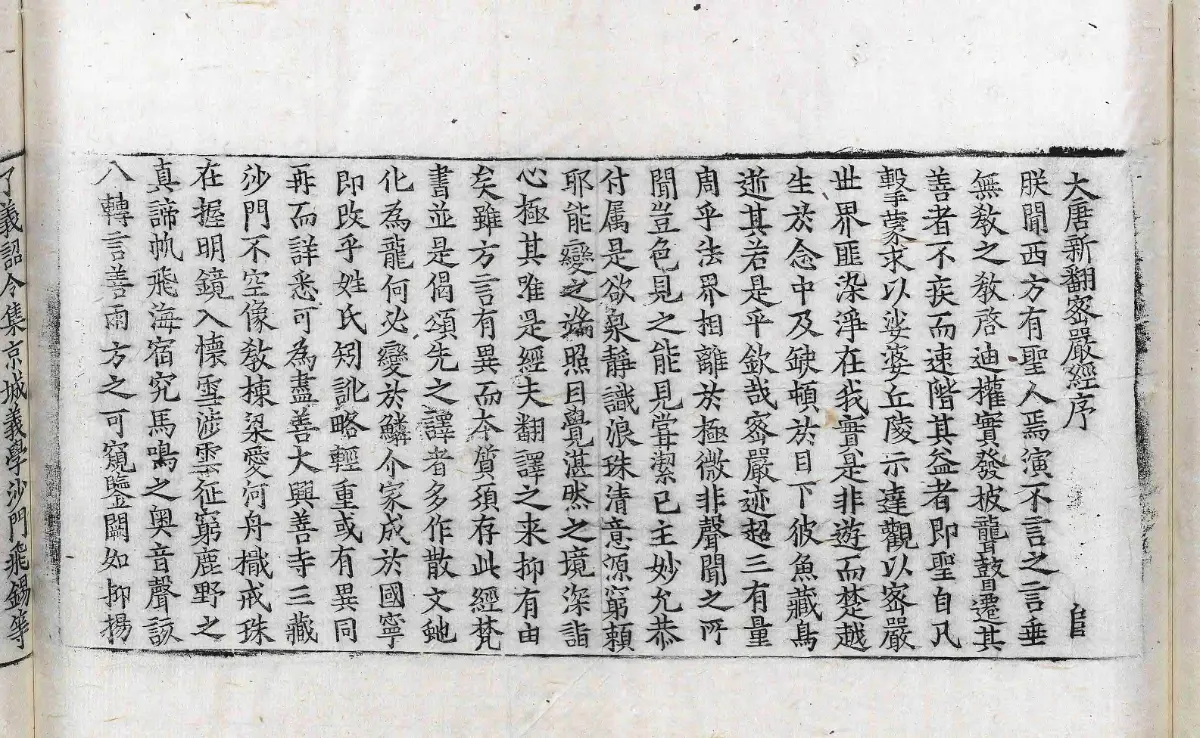 大唐新翻密嚴經序 𦣝
朕聞西方有聖人焉演不言之言垂
無教之教啓迪權實發披聾瞽遷其
善者不疾而速階其益者即聖自凡
擊蒙求以娑婆丘陵示達觀以密嚴
世界匪染淨在我實是非遊而楚越
生於念中及缺頓於目下彼魚藏鳥
逝其若是乎欽哉密嚴迹超三有量
周乎法界相離於極微非聲聞之所
聞豈色見之能見嘗潔已主妙允恭
付属是欲泉靜識浪珠清意源窮賴
耶能變之端照自覺湛然之境深詣
心極其唯是經夫翻譯之来抑有由
矣雖方言有異而本質須存此經梵
書並是偈頌先之譯者多作散文虵
化為龍何必變於鱗介家成於國寧
即改乎姓氏矧訛略輕重或有異同
再而詳悉可為盡善大興善寺三藏
沙門不空像教棟梁愛河舟檝戒珠
在握明鏡入懷雪涉雲征窮鹿野之
真諦帆飛海宿究馬鳴之奥音聲該
八轉言善兩方之可窺鑒闢如抑揚
了義詔令集京城義學沙門飛錫等